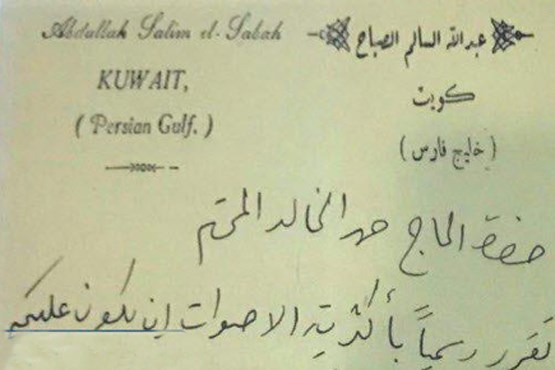 Abdullah Salim el-Sabah
عبدالله السالم الصباح
KUWAIT,
كويت
( Persian Gulf. )
( خليج فارس )
حضرة الحاج حمد الخالد المحترم
تقرر رسمياً بأكثرية الاصوات ان يكون عليكم